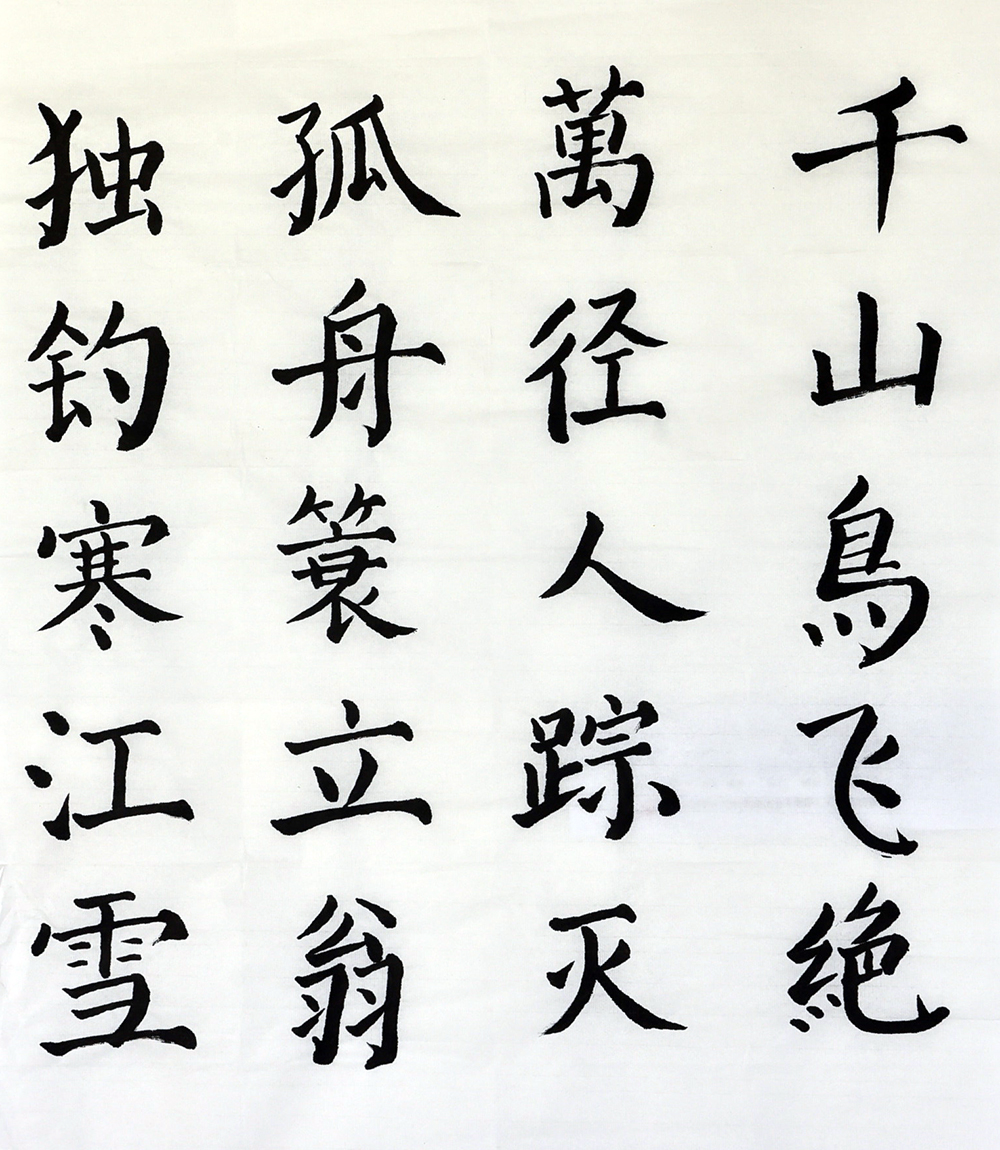 千山鳥飞絶
萬径人踪灭
孤舟簑立翁
独钓寒江雪